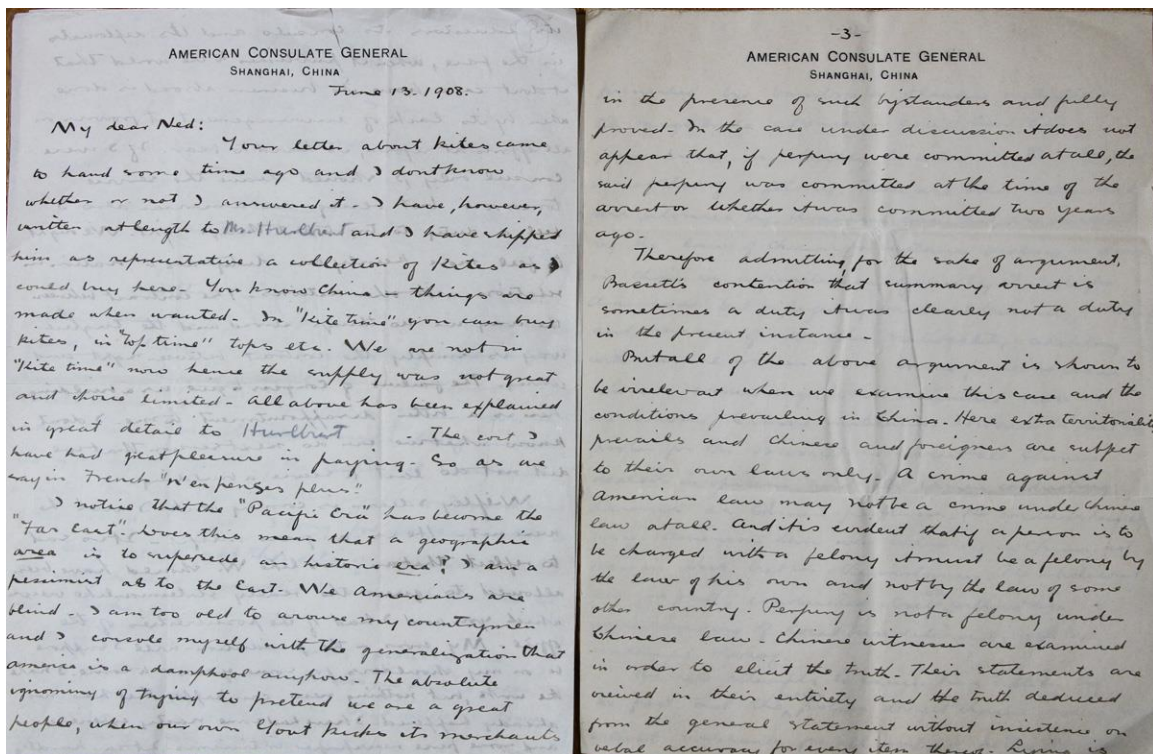 AMERICAN CONSULATE GENERAL
SHANGHAI, CHINA
June 13. 1908.
My dear Ned:
Your letter about kites came
to hand some time ago and I dont know
whether or not I answered it. I have, however,
written at length to Mr. Hurlbert and I have shipped
him as representative a collection of kites as I
could buy here. You know China – things are
made when wanted. In "kite time" you can buy
kites, in "top time" tops etc. We are not in
"kite time" now hence the supply was not great
and choice limited – All above has been explained
in great detail to Hurlbert. The cost I
have had great pleasure in paying. So as we
say in French "N'en penses plus."
I notice that the "Pacific Era" has become the
"Far East". Does this mean that a geographic
area is to supersede an historic era? I am a
pessimist as to the East. We Americans are
blind. I am too old to arouse my countrymen
and I console myself with the generalization that
america is a damphool anyhow. The absolute
ignominy of trying to pretend we are a great
people, when our own Gout kicks its merchants
-3-
AMERICAN CONSULATE GENERAL
SHANGHAI, CHINA
in the presence of such bystanders and fully
proved. In the case under discussion it does not
appear that, if perjury were committed at all, the
said perjury was committed at the time of the
arrest or whether it was committed two years
ago.
Therefore admitting, for the sake of argument,
Bassett's contention that summary arrest is
sometimes a duty it was clearly not a duty
in the present instance –
But all of the above argument is shown to
be irrelevant when we examine this case and the
conditions prevailing in China. Here extra territoriality
prevails and Chinese and foreigners are subject
to their own laws only. A crime against
American law may not be a crime under Chinese
law at all. And it is evident that if a person is to
be charged with a felony it must be a felony by
the law of his own and not by the law of some
other country. Perjury is not a felony under
Chinese law. Chinese witnesses are examined
in order to elicit the truth. Their statements are
received in their entirety and the truth deduced
from the general statement without insistence on
verbal accuracy for every item thereof.